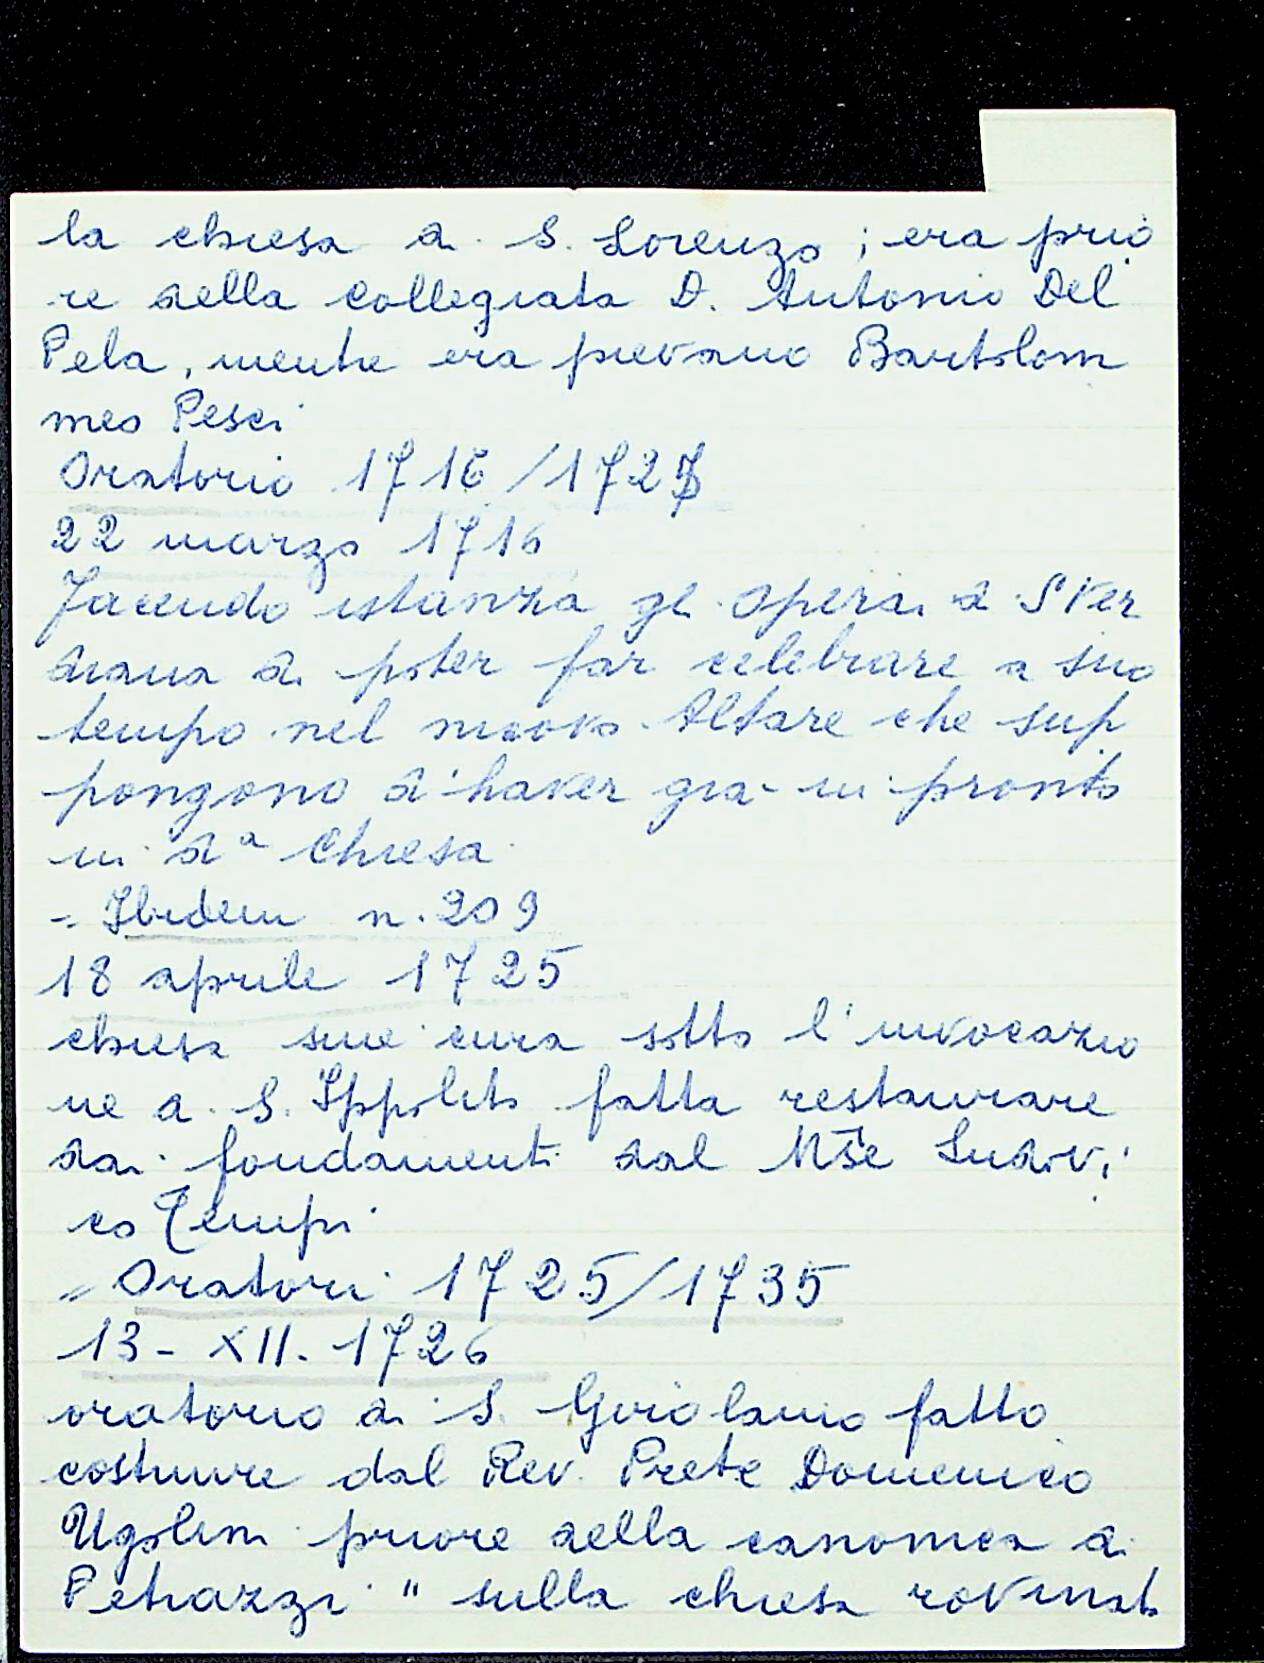 la chiesa di S. Lorenzo ; era prio
re della collegiata D. Antonio Del
Pela, mentre era pievano Bartolom
meo Pesci
Oratorio 1716/1727
22 marzo 1716
Facendo istanza gl. Operai di S Ver
diana di poter far celebrare a suo
tempo nel nuovo Altare che sup
pongono d'haver già in pronto
in da Chiesa
= Ibidem n. 209
18 aprile 1725
chiesa sine cura sotto l'invocazio
ne di S. Ippolito fatta restaurare
dai fondamenti dal Mse Ludovi
co Tempi
= Oratori 1725/1735
13 - XII. 1726
oratorio di S. Girolamo fatto
costruire dal Rev. Prete Domenico
Ugolini priore della canonica di
Petrazzi " sulla chiesa rovinata